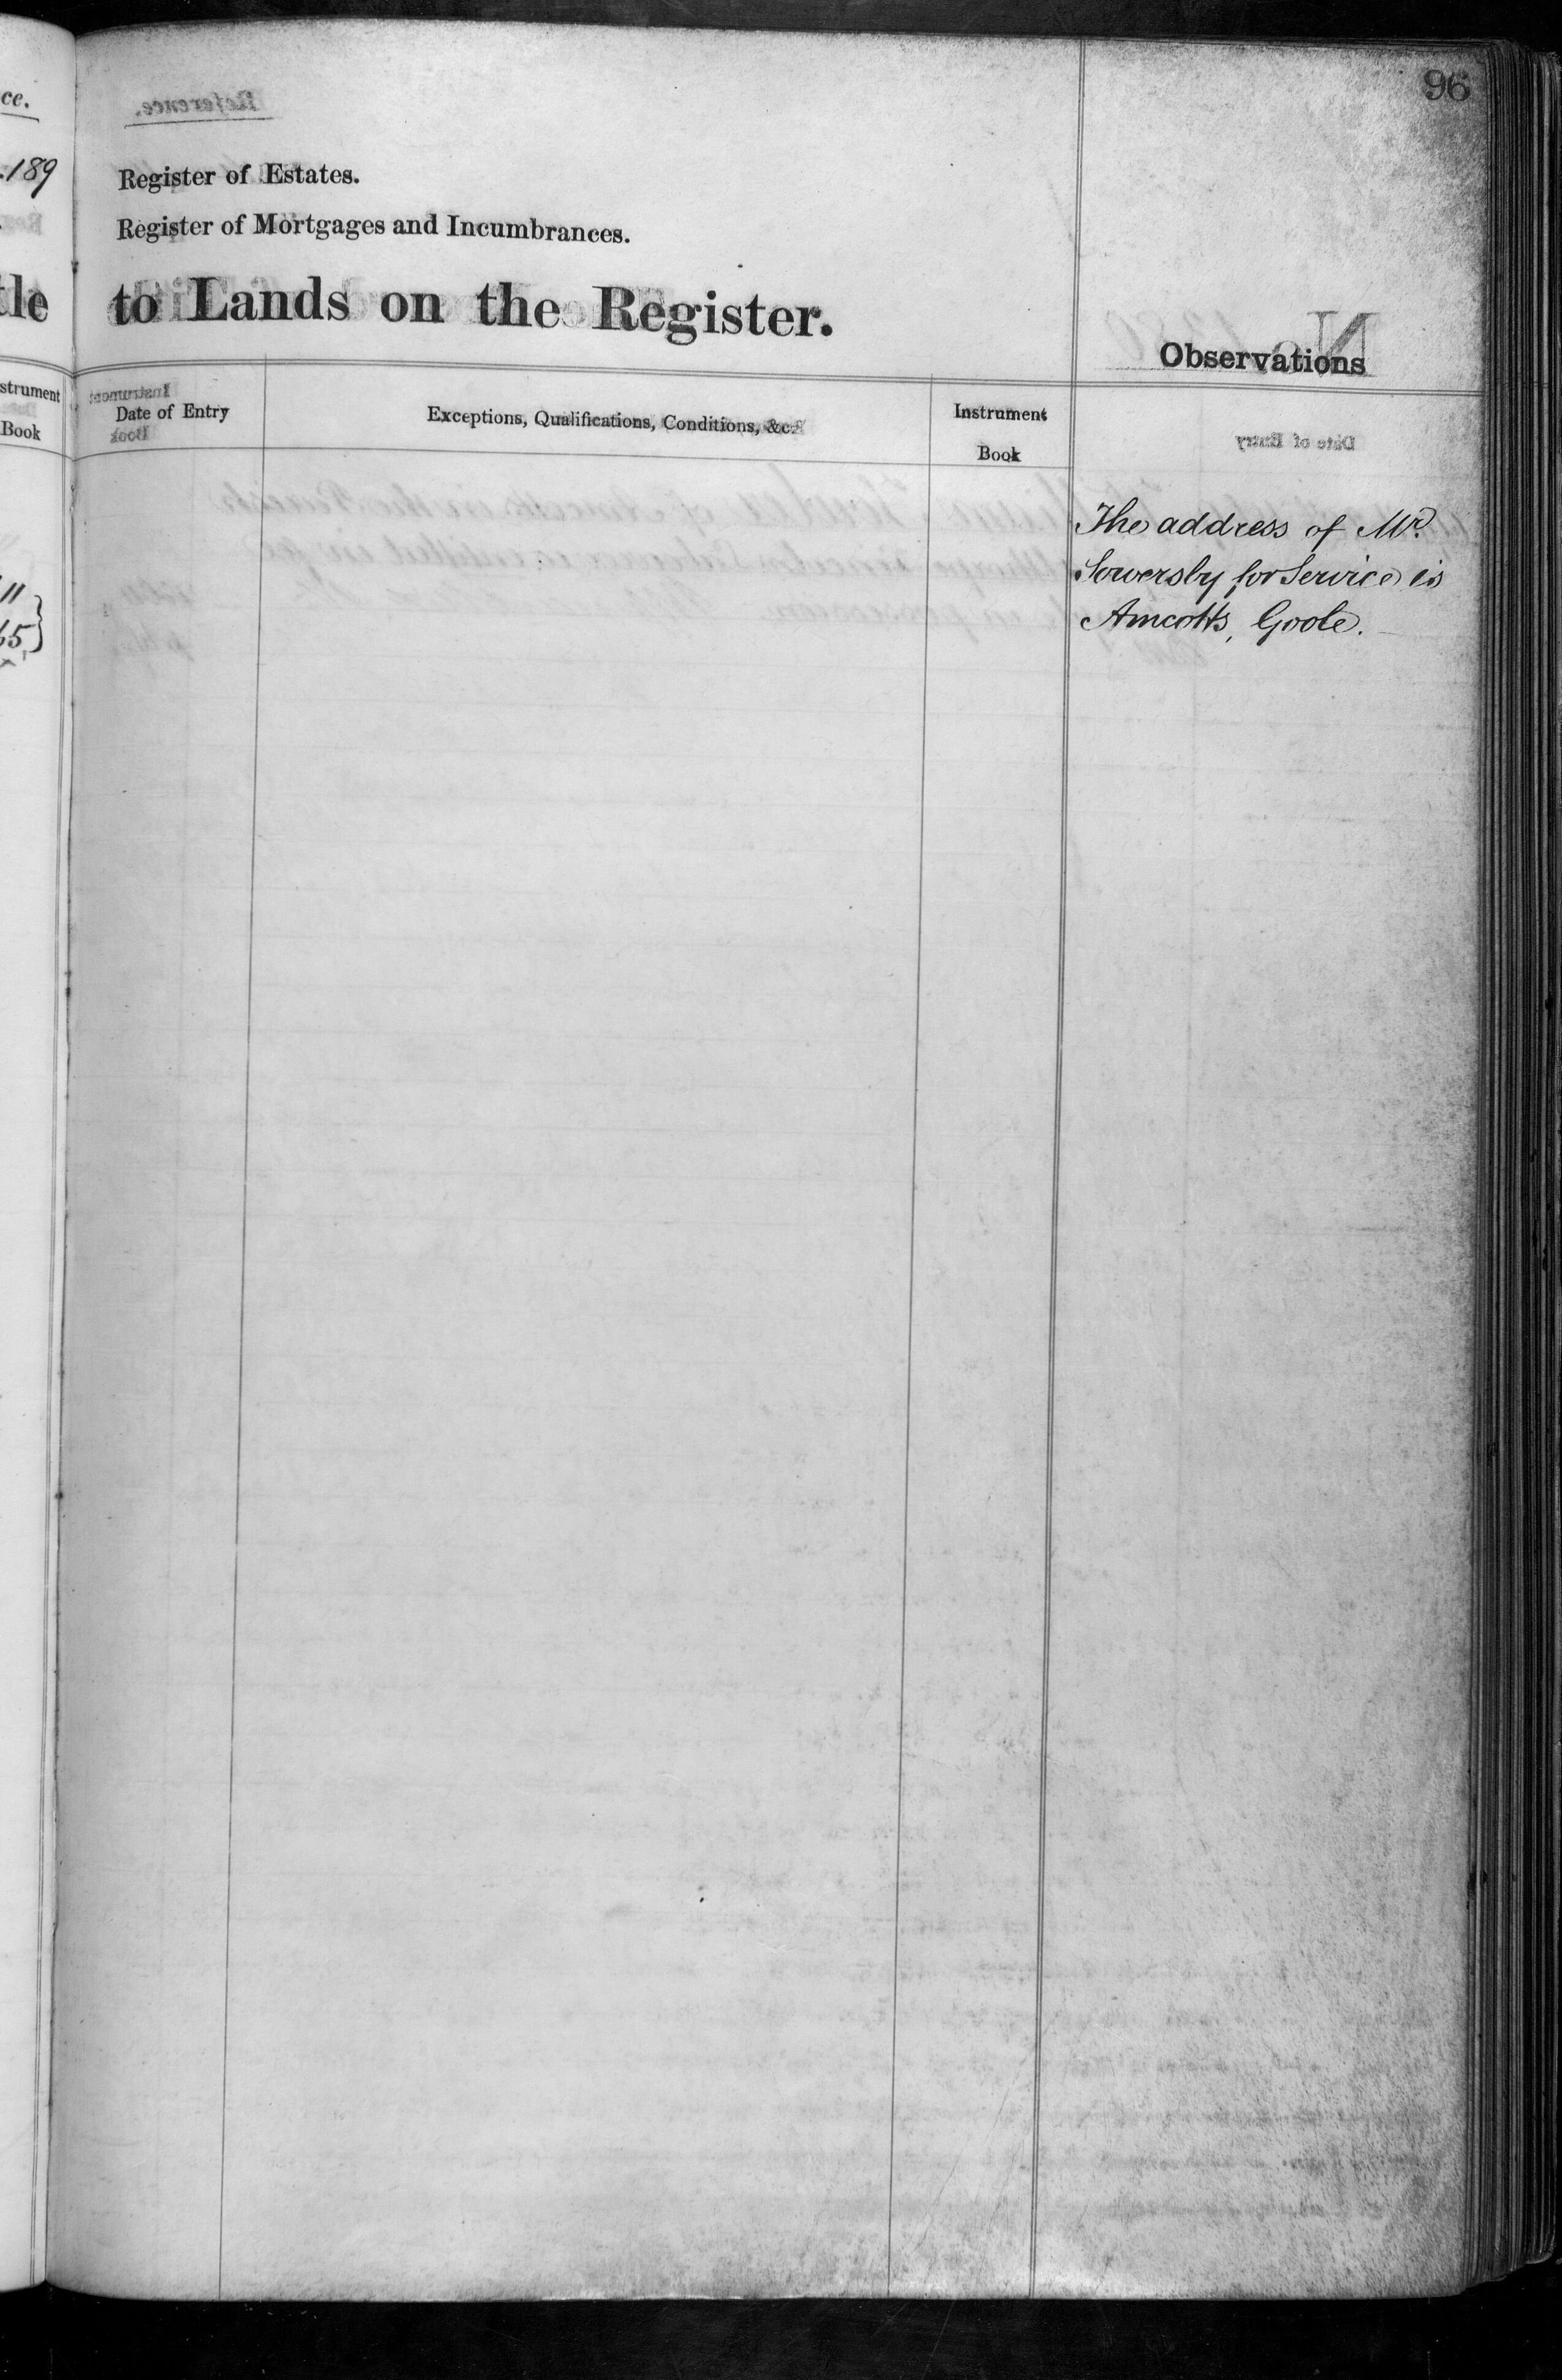 96
ce.
189
Register of Estates.
Register of Mortgages and Incumbrances.
tle
to Lands on the Register.
Observations
strument
Book
Date of Entry
Exceptions, Qualifications, Conditions, &c.
Instrument
Book
The address of Mr.
Sowersby for Service is
Amcotts, Goole.
11
65}